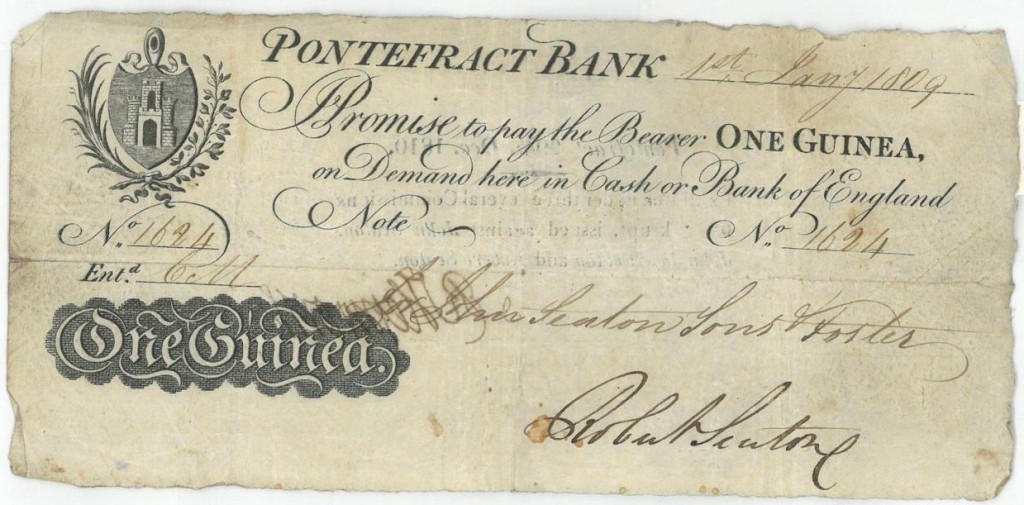 PONTEFRACT BANK 1st. Jany 1809
I Promise to pay the Bearer ONE GUINEA,
on Demand here in Cash or Bank of England
Note
No. 1624 No. 1624
Entd.
One Guinea.
Seaton Sons & Foster
Robert Seaton